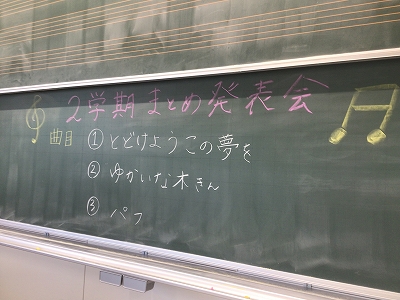 2学期まとめ発表会
曲目 ①とどけようこの夢を
②ゆかいな木きん
③パフ